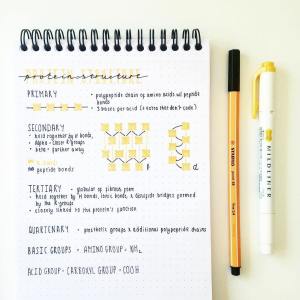 protein structure
PRIMARY
• polypeptide chain of amino acids w/ peptide bonds
• 3 bases per acid (+ extra that don't code)
SECONDARY
• held together by H bonds,
• alpha = closer R/groups
• beta = further away
peptide bonds
β
α
TERTIARY • globular or fibrous form
• held together by H bonds, ionic bonds, & disulfide bridges formed
by the R-groups
• closely linked to the protein's function
QUARTENARY • prosthetic groups & additional polypeptide chains
BASIC GROUPS = AMINO GROUP = NH₂
ACID GROUP = CARBOXYL GROUP = COOH
STABILO
point 88
MILDLINER